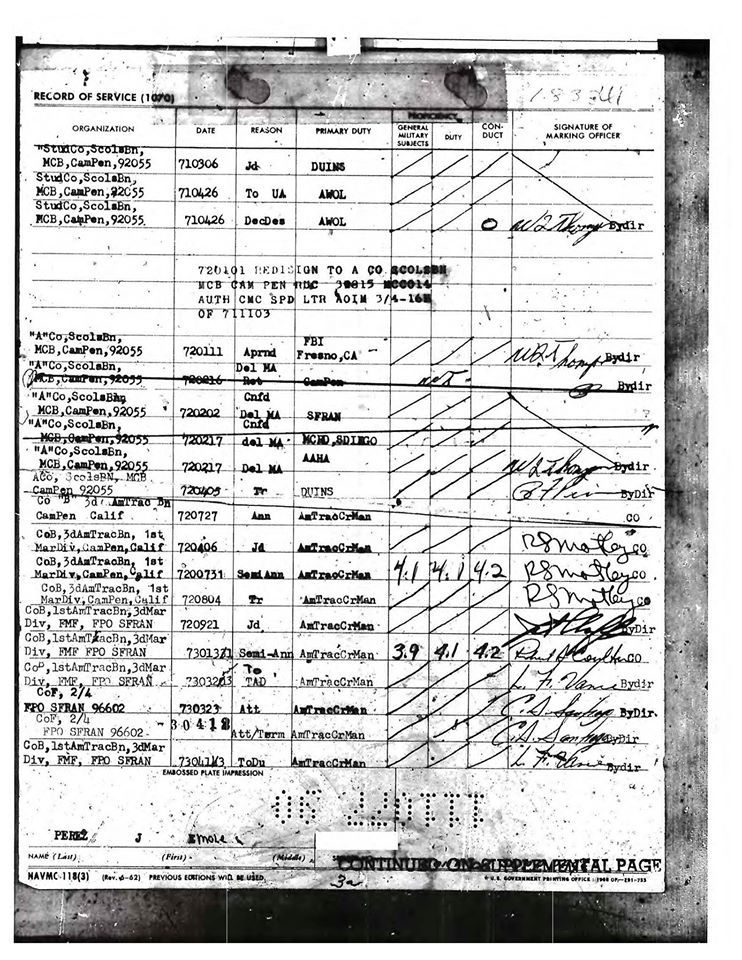 183341
RECORD OF SERVICE (1070)
PROFICIENCY
ORGANIZATION DATE REASON PRIMARY DUTY GENERAL MILITARY SUBJECTS DUTY CON-DUCT SIGNATURE OF MARKING OFFICER
"StudCo,ScolsBn,
MCB,CamPen,92055 710306 Jd DUINS
StudCo,ScolsBn,
MCB,CamPen,92055 710426 To UA AWOL
StudCo,ScolsBn,
MCB,CamPen,92055 710426 DecDes AWOL O Bydir
720101 REDISIGN TO A CO SCOLSBN
MCB CAM PEN RUC 30815 MCC014
AUTH CMC SPD LTR AO1M 3/4-16M
OF 711103
"A"Co,ScolsBn, FBI
MCB,CamPen,92055 720111 Aprnd Fresno,CA Bydir
"A"Co,ScolsBn, Del MA
MCB,CamPen,92055 720216 Ret CamPen Bydir
"A"Co,ScolsBn Cnfd
MCB,CamPen,92055 720202 Del MA SFRAN
"A"Co,ScolsBn, Cnfd
MCB,CamPen,92055 720217 del MA MCRD,SDIEGO
"A"Co,ScolsBn, AAHA
MCB,CamPen,92055 720217 Del MA Bydir
ACo, ScolsBN, MCB
CamPen 92055 720405 Tr DUINS ByDir
Co "B" 3d AmTrac Bn
CamPen Calif 720727 Ann AmTracCrMan CO
CoB,3dAmTracBn, 1st
MarDiv,CamPen,Calif 720406 Jd AmTracCrMan CO
CoB,3dAmTracBn, 1st
MarDiv,CamPen,Calif 7200731 SemiAnn AmTracCrMan 4.1 4.1 4.2 CO.
CoB,3dAmTracBn, 1st
MarDiv,CamPen,Calif 720804 Tr AmTracCrMan CO
CoB,1stAmTracBn,3dMar
Div, FMF, FPO SFRAN 720921 Jd AmTracCrMan ByDir
CoB,1stAmTracBn,3dMar
Div, FMF FPO SFRAN 730131 Semi-Ann AmTracCrMan 3.9 4.1 4.2 CO
CoB,1stAmTracBn,3dMar To
Div, FMF, FPO SFRAN 730323 TAD AmTracCrMan L. F. Bydir
CoF, 2/4
FPO SFRAN 96602 730323 Att AmTracCrMan ByDir.
CoF, 2/4 30412
FPO SFRAN 96602 Att/Term AmTracCrMan ByDir
CoB,1stAmTracBn,3dMar
Div, FMF, FPO SFRAN 730413 ToDu AmTracCrMan L. F. Bydir
EMBOSSED PLATE IMPRESSION
PEREZ J
NAME (Last) (First) (Middle)
CONTINUED ON SUPPLEMENTAL PAGE
NAVMC 118(3) (Rev. 6-62) PREVIOUS EDITIONS WILL BE USED.
☆ U.S. GOVERNMENT PRINTING OFFICE : 1968 OF—291-733
3a